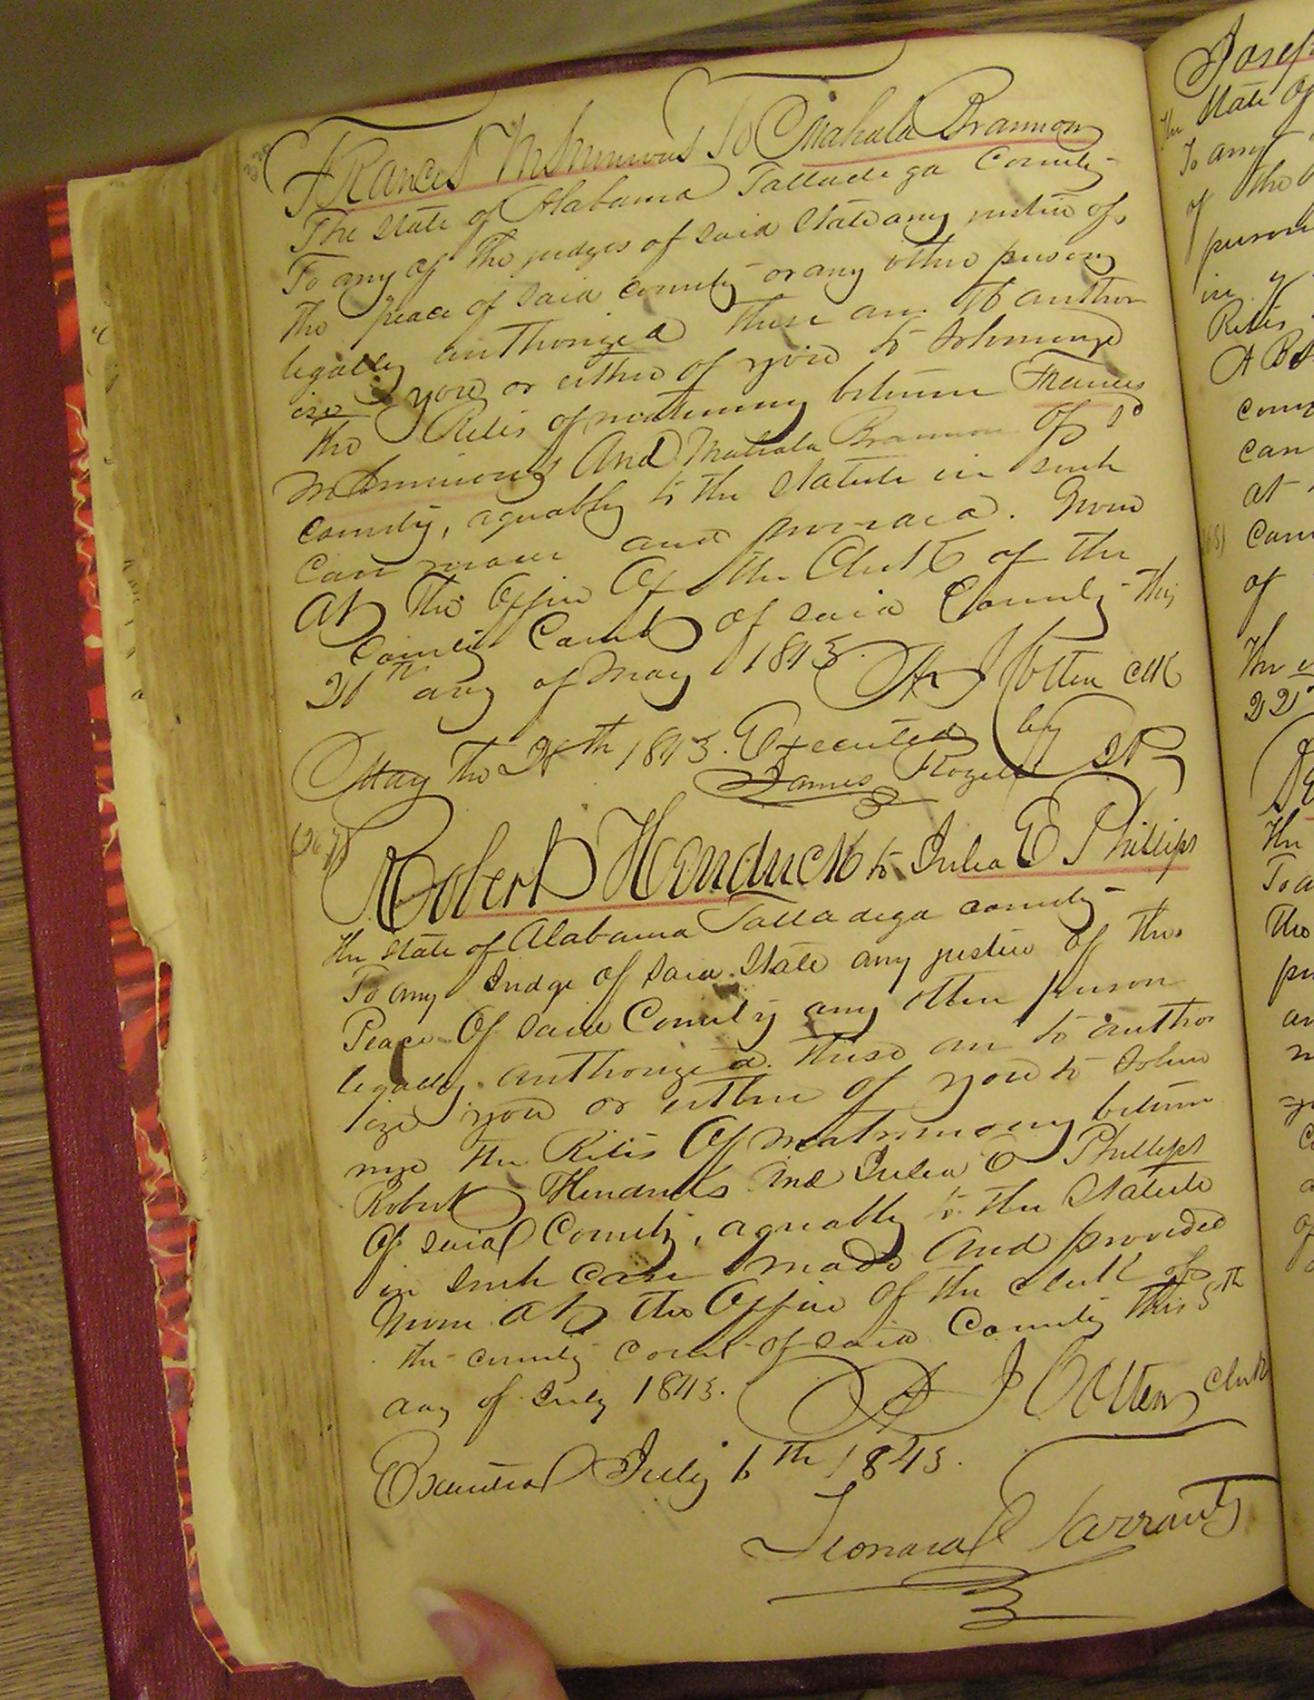 Frances McSimmons To Mahala Brannon
The State of Alabama Talladega County
To any of the judges of said State any justice of
the peace of said county or any other person
legally authorized these are to author
ize you or either of you to solemnize
the Rites of matrimony between Frances
McSimmons And Mahala Brannon of sd
County, agreably to the statute in such
case made and provided. Given
At the Office Of the Clerk of the
County Court of said County this
day of May 1843 Cotten clk
May the 28th 1843. Executed by
James JP
Robert Hendrick to Julia E Phillips
the State of Alabama Talladega county
To any Judge of said State any justice of the
Peace Of said County any other person
legally authorized. these are to autho
ize you or either of you to solem
nize the Rites Of matrimony between
Robert Hendricks and Julia E Phillips
Of said County, agreably to the Statute
in such case made And provided
Given At the Office Of the clerk of
the county court of said County this 5th
day of July 1843. J Cotten Clerk
Executed July 6th 1843.
Leonard Tarrant
Josep
The State of
To any
of the
person
in
Rites
A B
com
can
at
Coun
of
The
22
The
To a
the